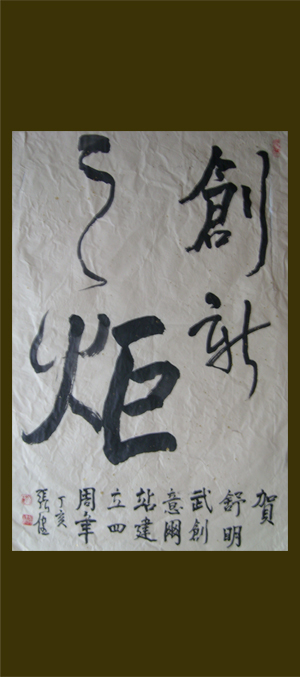 創新
之炬
賀
舒明
武創
意網
站建
立四
周年
丁亥
張